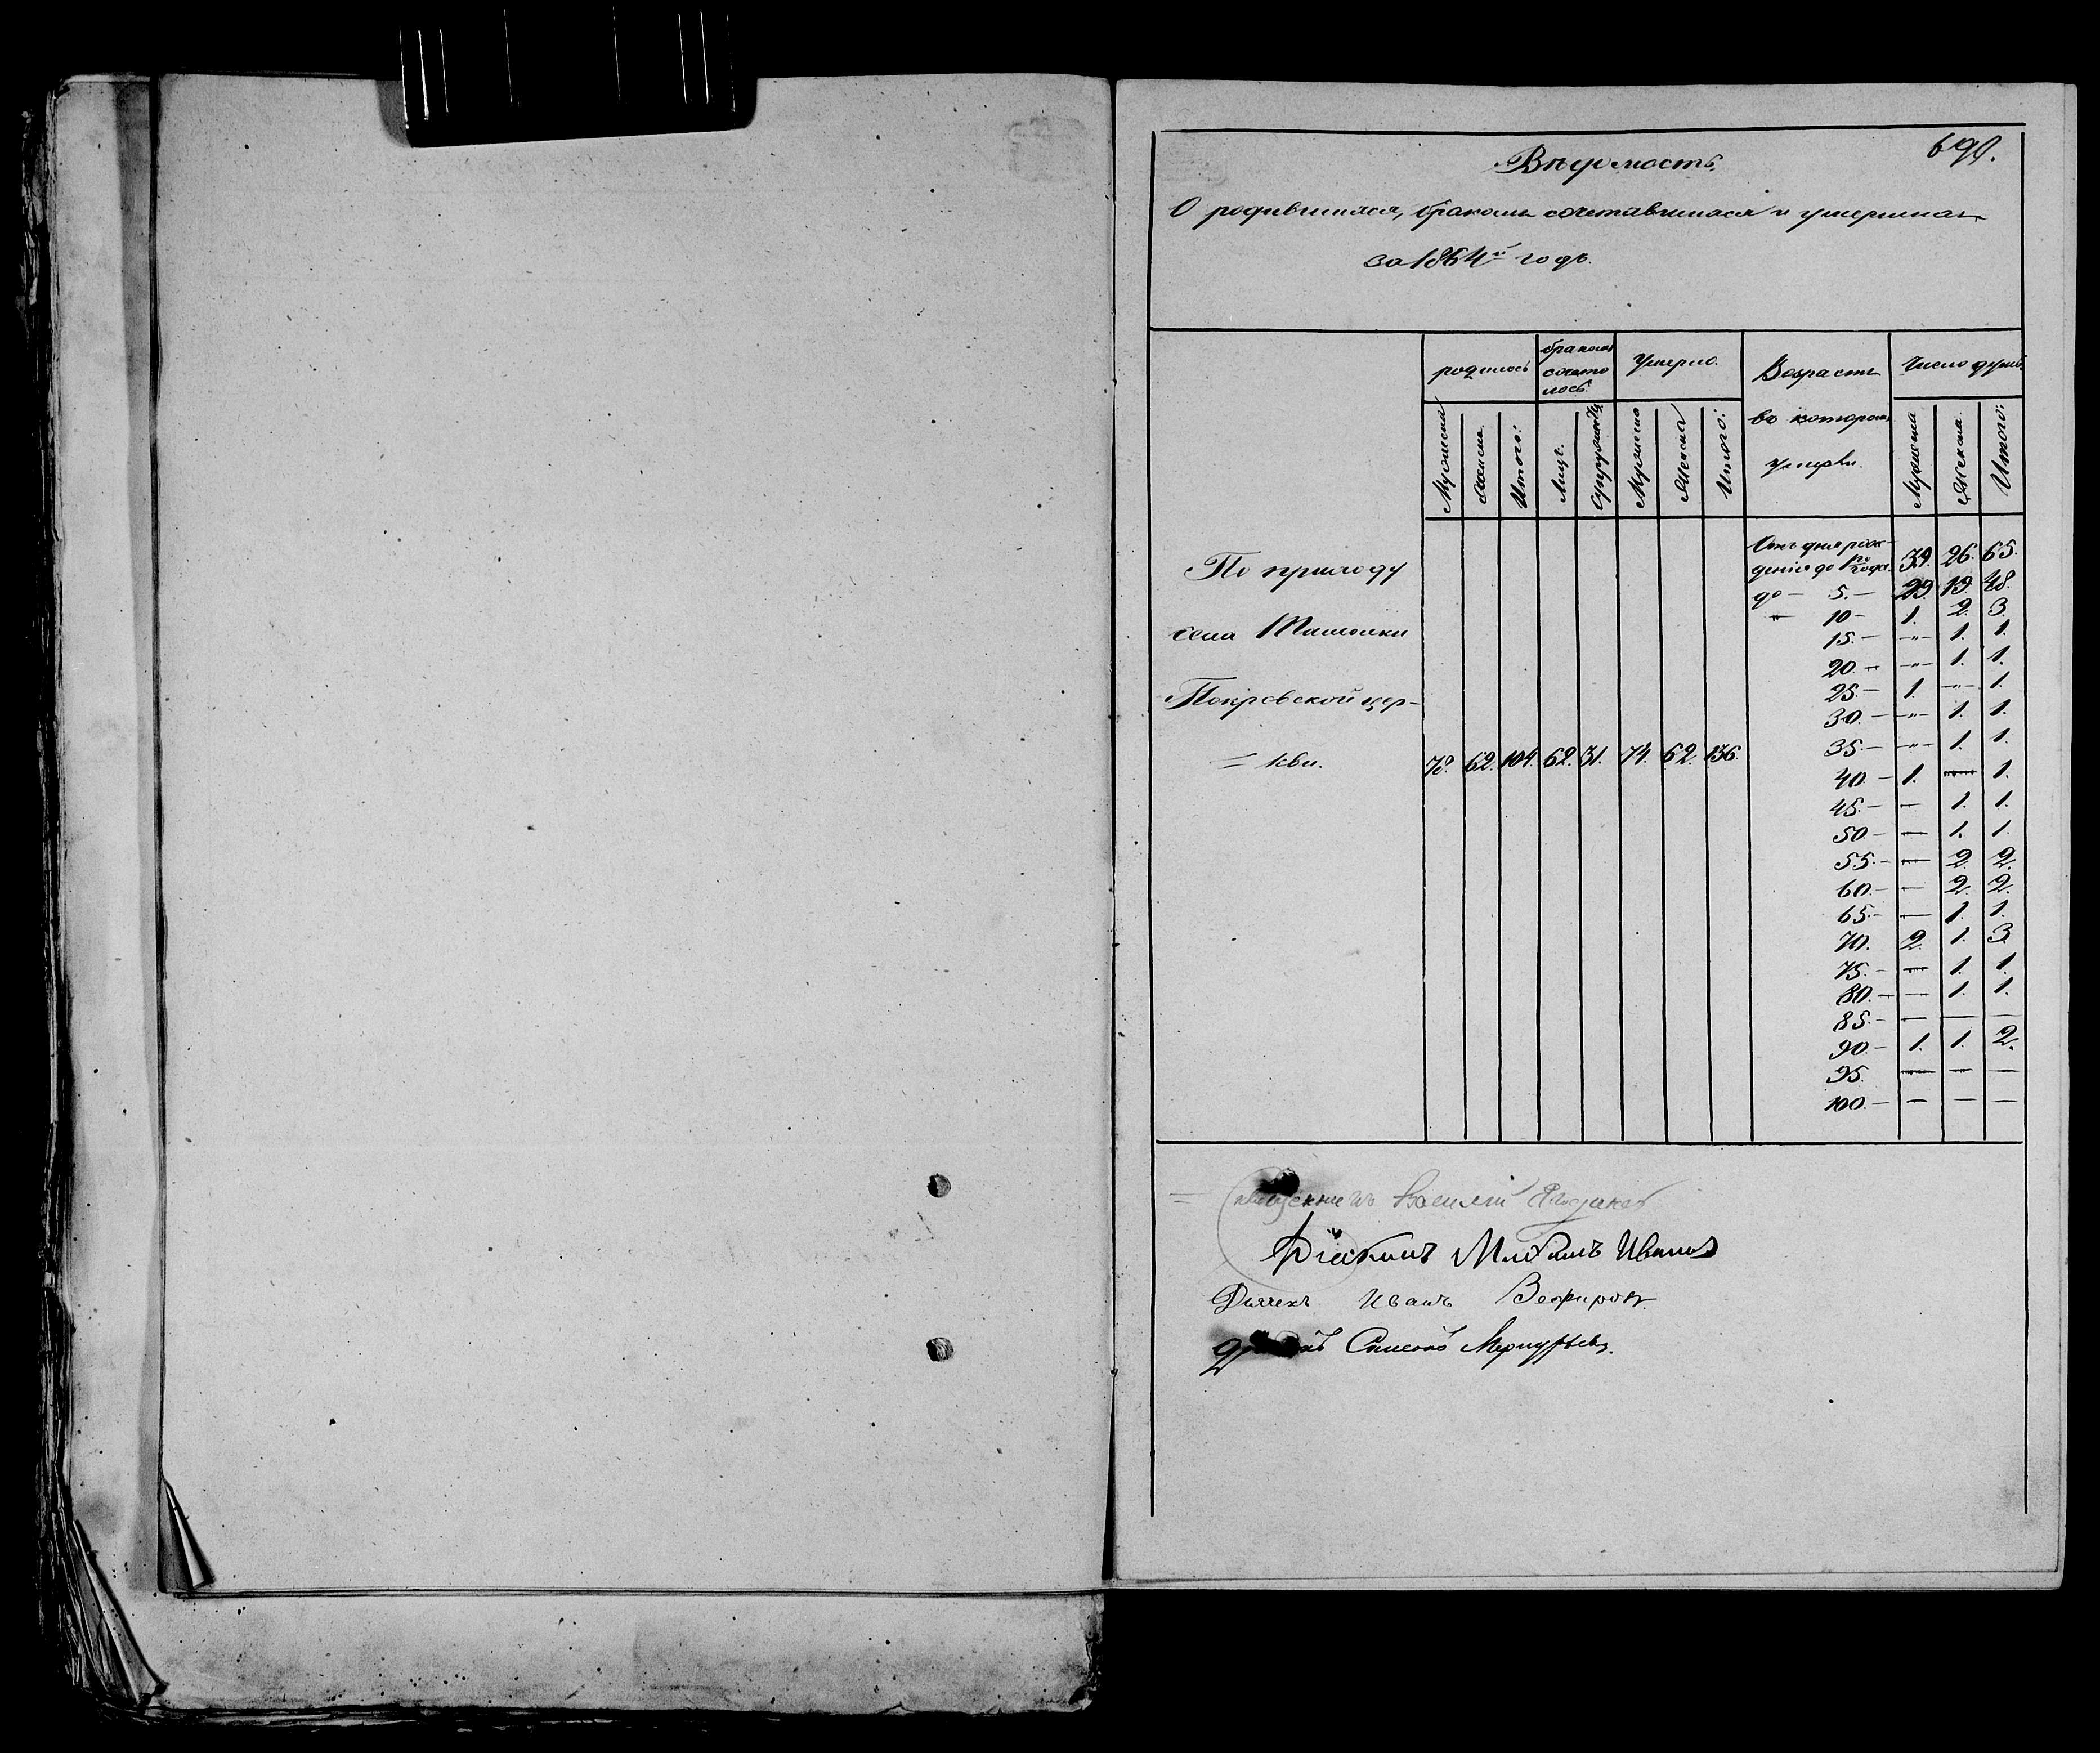 690.
Вѣдомость.
О родившихся, бракомъ сочетавшихся и умершихъ
за 1864й годъ.
родилось бракомъ сочетолось. Умерло. Возрастъ въ которомъ умерли. Число душъ.
Мужеска Женска Итого: Лицъ. Супружествъ Мужеска Женска Итого: Мужеска Женска. Итого:
По приходу
села
Покровской цер-
= кви. 78. 62. 104. 62. 31. 74. 62. 136.
Отъ дня рож-
денія до 1го года. 39. 26. 65.
до — 5. — 29. 19. 48.
" 10 — 1. 2. 3.
15. — —"— 1. 1.
20. — —"— 1. 1.
25 — 1. —"— 1.
30. — —"— 1. 1.
35. — —"— 1. 1.
40. — 1. — 1.
45. — — 1. 1.
50 — — 1. 1.
55. — — 2. 2.
60. — — 2. 2.
65. — — 1. 1.
70. 2. 1. 3.
75. — — 1. 1.
80. — — 1. 1.
85. — — — —
90 — 1. 1. 2.
95. — — —
100. — — — —
Василій
Діаконъ Иванов
Дьячекъ Иванъ Зефировъ.